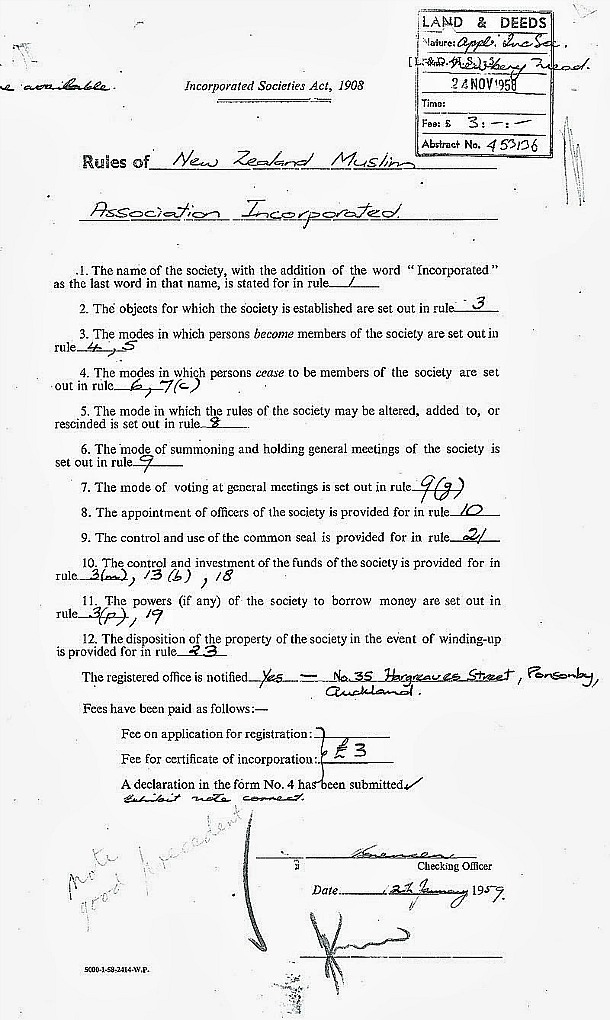 LAND & DEEDS
Nature: Appl. Inc Soc.
24 NOV 1958
Time:
Fee: £ 3:-:-
Abstract No. 453136
available.
Incorporated Societies Act, 1908
Rules of New Zealand Muslim
Association Incorporated.
1. The name of the society, with the addition of the word “Incorporated”
as the last word in that name, is stated for in rule 1
2. The objects for which the society is established are set out in rule 3
3. The modes in which persons become members of the society are set out in
rule 4, 5
4. The modes in which persons cease to be members of the society are set
out in rule 6, 7(c)
5. The mode in which the rules of the society may be altered, added to, or
rescinded is set out in rule 8
6. The mode of summoning and holding general meetings of the society is
set out in rule 9
7. The mode of voting at general meetings is set out in rule 9(g)
8. The appointment of officers of the society is provided for in rule 10
9. The control and use of the common seal is provided for in rule 21
10. The control and investment of the funds of the society is provided for in
rule 3(m), 13(b), 18
11. The powers (if any) of the society to borrow money are set out in
rule 3(p), 19
12. The disposition of the property of the society in the event of winding-up
is provided for in rule 23
The registered office is notified Yes — No. 35 Hargreaves Street, Ponsonby,
Auckland.
Fees have been paid as follows:—
Fee on application for registration:
£3
Fee for certificate of incorporation:
A declaration in the form No. 4 has been submitted ✓
Exhibit note correct.
Note
good precedent
Checking Officer
Date 12th January 1959.
5000-1-58-2414-W.P.